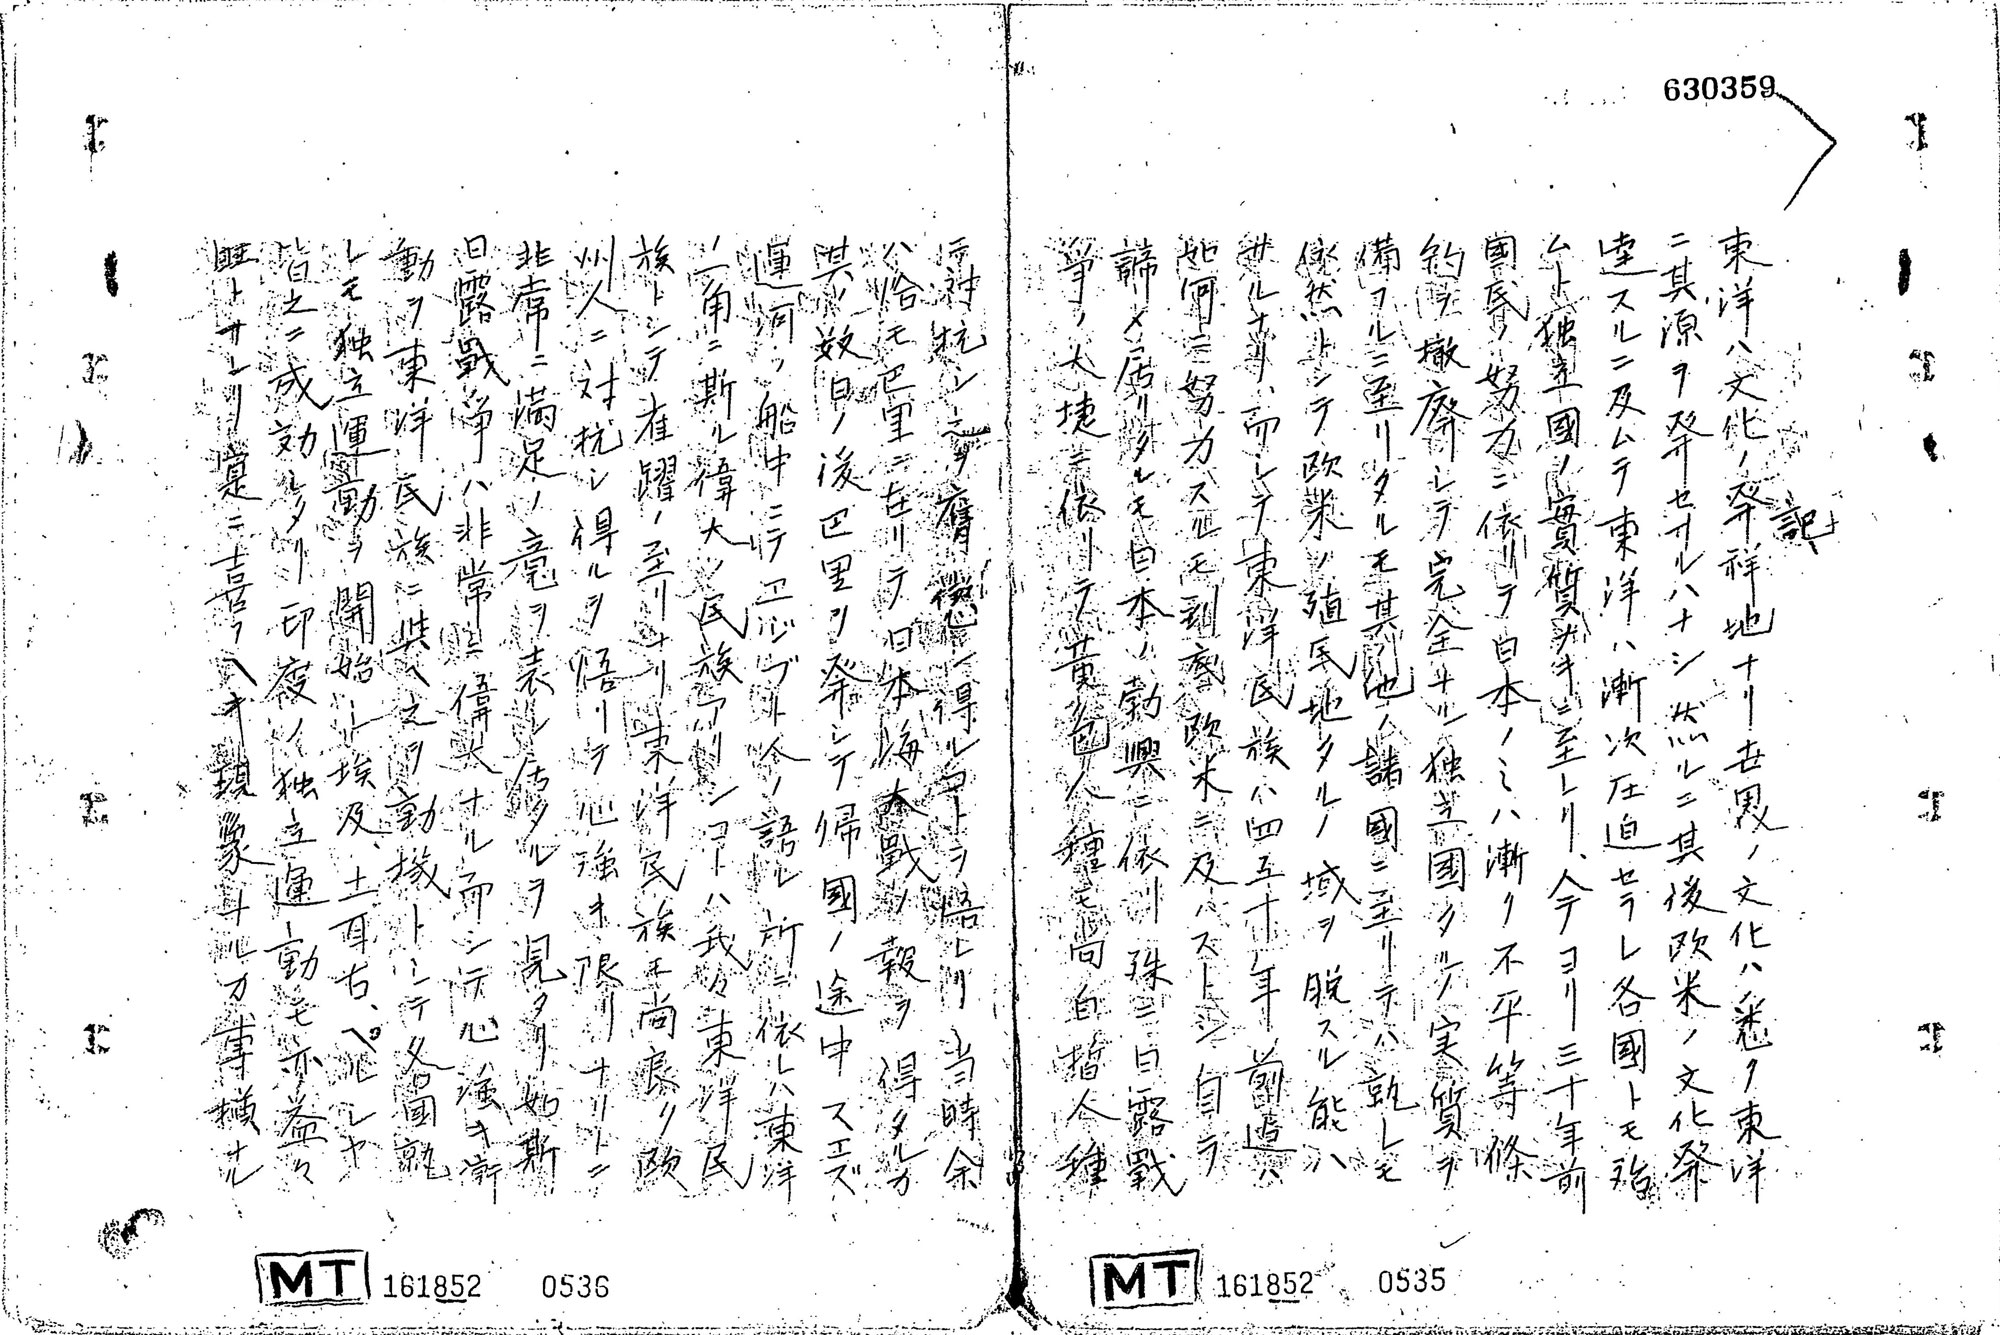 630359
記
東洋ハ文化ノ発祥地ナリ世界ノ文化ハ悉ク東洋
ニ其源ヲ発セサルハナシ然ルニ其後欧米ノ文化発
達スルニ及ムテ東洋ハ漸次圧迫セラレ各國トモ殆
ムト独立國ノ實質ナキニ至レリ、今ヨリ三十年前
國民ノ努力ニ依リテ日本ノミハ漸ク不平等條
約ヲ撤廃シテ完全ナル独立國タルノ実質ヲ
備フルニ至リタルモ其ノ他ノ諸國ニ至リテハ孰レモ
依然トシテ欧米ノ殖民地タルノ域ヲ脱スル能ハ
サルナリ、而シテ東洋民族ハ四五十年前迄ハ
如何ニ努力スルモ到底欧米ニ及ハストシ自ラ
諦メ居リタルモ日本ノ勃興ニ依リ殊ニ日露戰
爭ノ大捷ニ依リテ黄色人種モ尚白皙人種
ニ対抗シ之ヲ膺懲シ得ルコトヲ悟レリ当時余
ハ恰モ巴里ニ在リテ日本海大戰ノ報ヲ得タルカ
其ノ数日ノ後巴里ヲ発シテ帰國ノ途中スエズ
運河ノ船中ニテエジプト人ノ語ル所ニ依レハ東洋
ノ一角ニ斯ル偉大ノ民族アリシコトハ我々東洋民
族トシテ雀躍ノ至リナリ東洋民族モ尚良ク欧
州人ニ対抗シ得ルヲ悟リテ心強キ限リナリトニ
非常ニ満足ノ意ヲ表シ居タルヲ見タリ如斯
日露戰爭ハ非常ニ偉大ナル而シテ心強キ衝
動ヲ東洋民族ニ與ヘ之ヲ動機トシテ各國孰
レモ独立運動ヲ開始シ埃及、土耳古、ペルシヤ
皆之ニ成効シタリ印度ノ独立運動モ亦益々
旺トナレリ寔ニ喜フヘキ現象ナルカ専横ナル
MT 161852 0535
MT 161852 0536